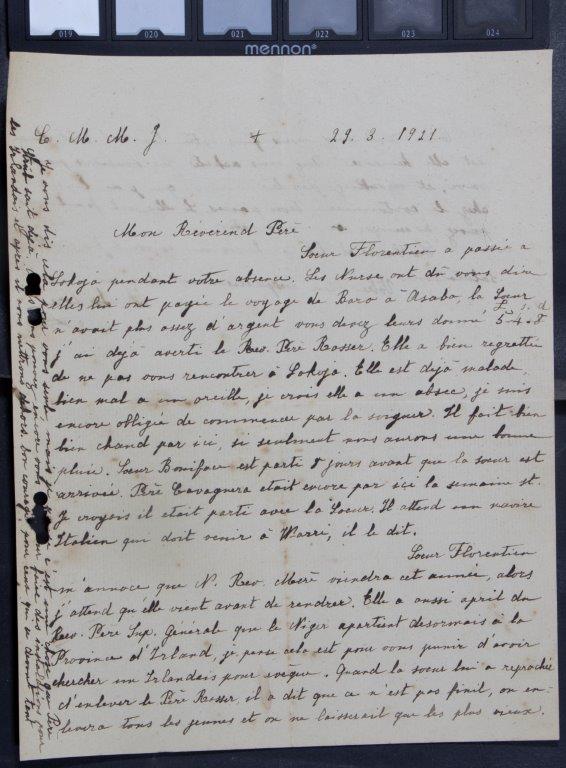 019 020 021 022 023 024
mennon
C. M. M. J. + 29. 3. 1921
Mon Révérend Père
Sœur Florentien a passée a
Lokoja pendant votre absence. Les Nurse ont dû vous dire
elles lui ont payée le voyage de Baro à Asaba, la Sœur
n'avait plus assez d'argent vous devez leurs donné £5-4s-8d
j'ai déjà averti le Rev. Père Rosser. Elle a bien regrettée
de ne pas vous rencontrer à Lokoja. Elle est déjà malade,
bien mal a un oreille, je crois elle a un absec, je suis
encore obligée de commencée par la soigner. Il fait bien
bien chaud par ici, si seulment nous aurons une bonne
pluie. Sœur Boniface est parti 8 jours avant que la sœur est
arrivée. Père Cavagnera etait encore par ici la semaine st.
Je croyais il etait parti avec la Sœur. Il attend un navire
Italien qui doit venir à Warri, il le dit.
Sœur Florentien
m'annoce que N. Rev. Mère viendra cet année, alors
j'attend qu'elle vient avant de rendrer. Elle a aussi aprit du
Rev. Père Sup. Générale que le Niger apartient desormais à la
Province d'Irland, je pense cela est pour vous punir d'avoir
chercher un Irlandais pour evêque. Quand la sœur lui a reprochée
d'enlever le Père Rosser, il a dit que ce n'est pas finit, on en-
levera tous les jeunes et on ne laisserait que les plus vieux.
Je vous dis cela pour vous seule, mais je pense c'est une chose que Père
était déjà vous pouvez encore vous pour faire des installations pour
les Irlandais et après il vous mettrons dehors. Bon courage pour ceux que se dévoue tant